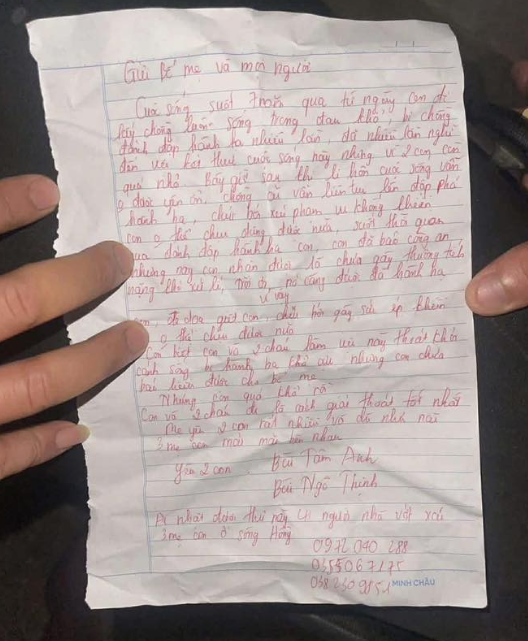 Gửi bố mẹ và mọi người
Cuộc sống suốt 7 năm qua từ ngày con đi
lấy chồng luôn sống trong đau khổ, bị chồng
đánh đập hành hạ nhiều lần đã nhiều lần nghĩ
đến việc kết thúc cuộc sống này nhưng vì 2 con còn
quá nhỏ. Bây giờ sau khi li hôn cuộc sống vẫn
o được yên ổn, chồng cũ vẫn liên tục lần đập phá
hành hạ, chửi bới xúc phạm khiến
con o thể chịu đựng được nữa, suốt thời gian
qua đánh đập hành hạ con, con đã báo công an
nhưng nay con nhận được là chưa gây thương tích
nặng khó xử lí, do đó, nó càng được đà hành hạ
vì vậy
con, đe dọa giết con, chửi bới gây sức ép khiến
o thể chịu được nữa
Con biết con và 2 cháu làm việc này thoát khỏi
cảnh sống bị hành hạ khổ cực nhưng con chưa
báo hiếu được cho bố mẹ
Nhưng con quá khổ rồi
Con và 2 cháu đi là cách giải thoát tốt nhất
Mẹ yêu 2 con rất nhiều và dù như nào
3 mẹ con mãi mãi bên nhau
Yêu 2 con
Bùi Tâm Anh
Bùi Ngô Thịnh
Ai nhặt được thư này, LH người nhà vớt xác
3 mẹ con ở sông Hồng
0972 040 288
MINH CHÂU